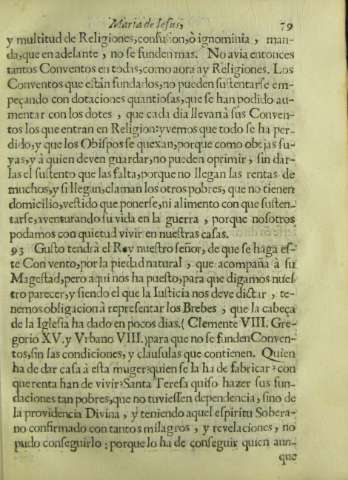 Maria de Iesus, 79
y multitud de Religiones, confusion, ò ignominia, man-
da, que en adelante, no se funden mas. No avia entonces
tantos Conventos en todas, como aora ay Religiones. Los
Conventos que estàn fundados, no pueden sustentarse em-
peçando con dotaciones quantiosas, que se han podido au-
mentar con los dotes, que cada dia llevan à sus Conven-
tos los que entran en Religion: y vemos que todo se ha per-
dido, y que los Obispos se quexan, porque como obejas su-
yas, y à quien deven guardar, no pueden oprimir, sin dar-
las el sustento que las falta, porque no llegan las rentas de
muchos, y si llegan, claman los otros pobres, que no tienen
domicilio, vestido que ponerse, ni alimento con que susten-
tarse, aventurando su vida en la guerra, porque nosotros
podamos con quietud vivir en nuestras casas.
93 Gusto tendrà el Rey nuestro señor, de que se haga es-
te Convento, por la piedad natural, que acompaña à su
Magestad, pero aqui nos ha puesto, para que digamos nues-
tro parecer, y siendo el que la Iusticia nos deve dictar, te-
nemos obligacion à representar los Brebes, que la cabeça
de la Iglesia ha dado en pocos dias. (Clemente VIII. Gre-
gorio XV. y Vrbano VIII.) para que no se funden Conven-
tos, sin las condiciones, y clausulas que contienen. Quien
ha de dar casa à esta muger: quien se la ha de fabricar: con
que renta han de vivir: Santa Teresa quiso hazer sus fun-
daciones tan pobres, que no tuviessen dependencia, sino de
la providencia Divina, y teniendo aquel espiritu Sobera-
no confirmado con tantos milagros, y revelaciones, no
pudo conseguirlo: porque lo ha de conseguir quien aun-
que